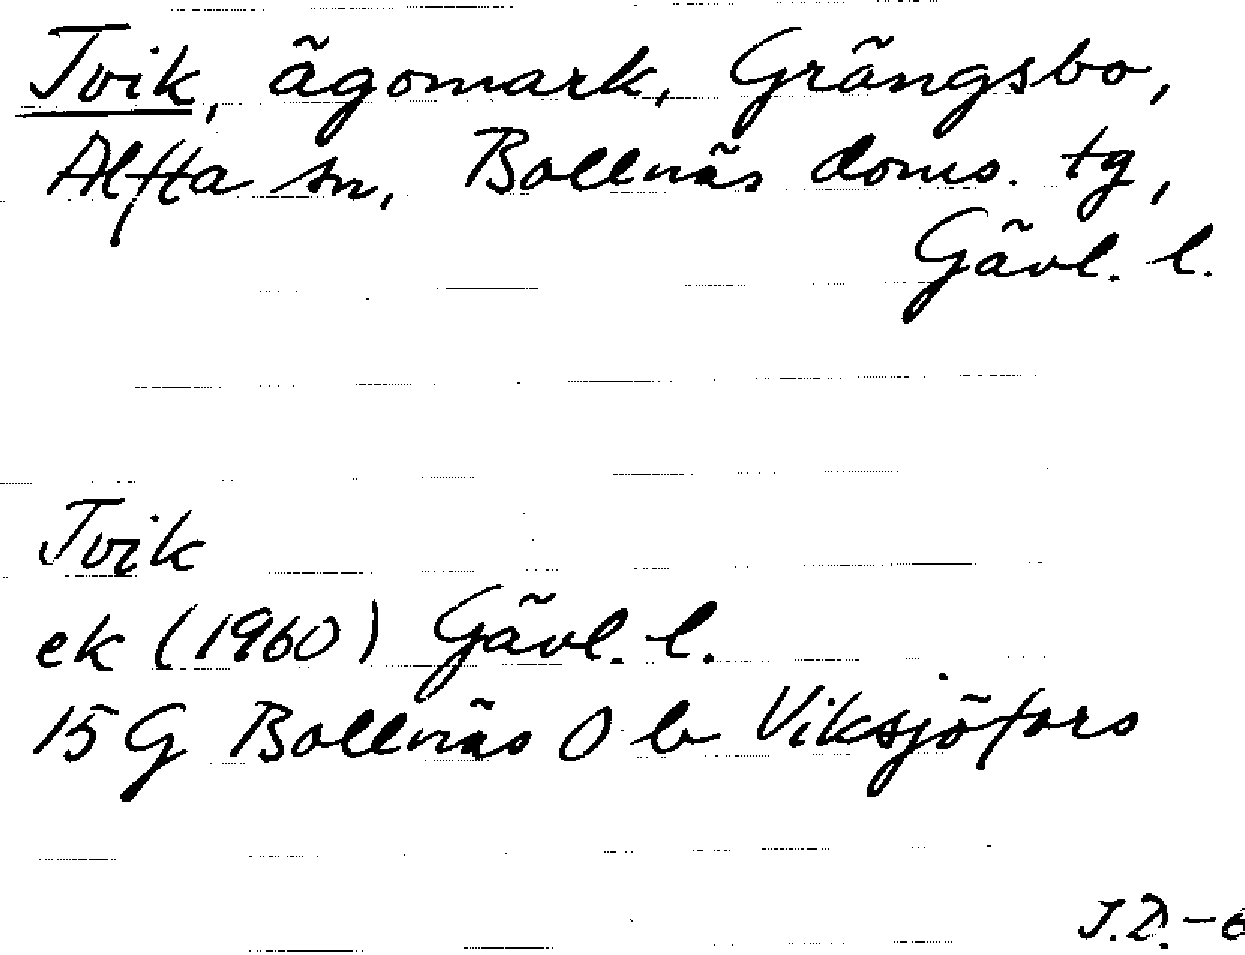 Tvik, ägomark, Grängsbo,
Alfta sn, Bollnäs doms. tg,
Gävl. l.
Tvik
ek (1960) Gävl. l.
15 G Bollnäs 0 b Viksjöfors
J.D. - 6